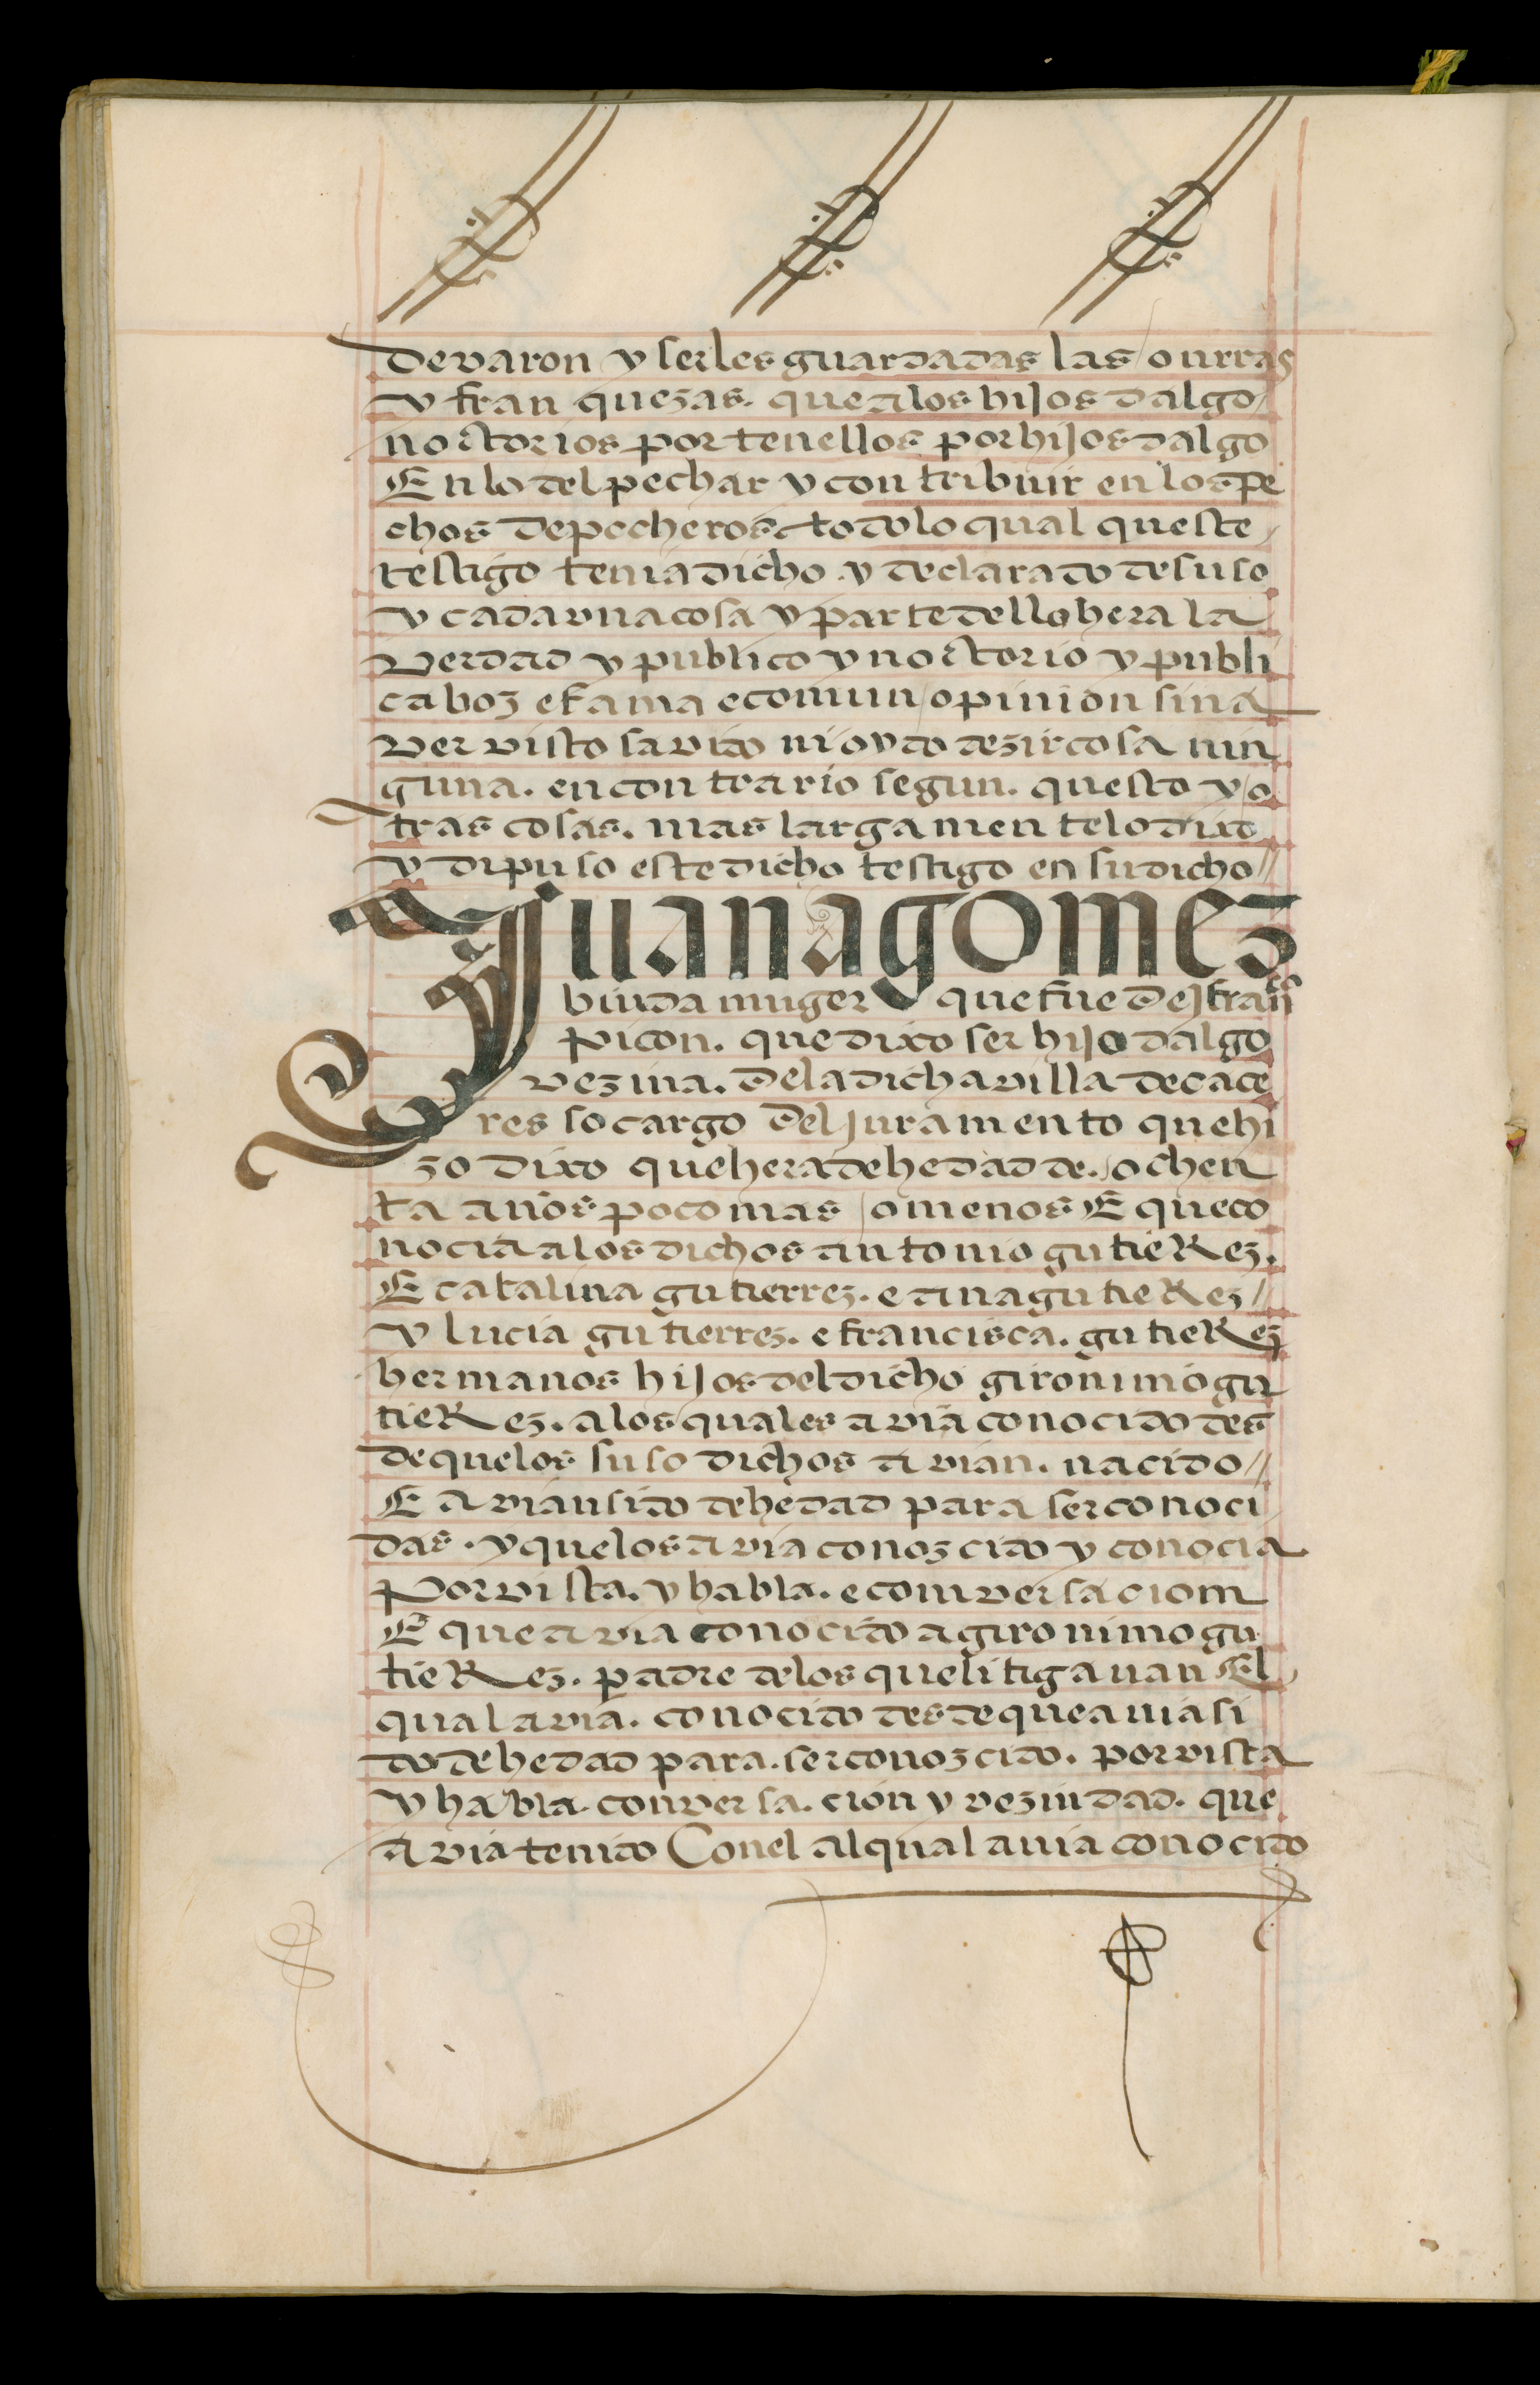 de varon y serles guardadas las onrras
y franquezas. que a los hijos dalgo
noctorios por tenellos por hijos dalgo
En lo del pechar y contribuir en los pe
chos de pecheros todo lo qual queste
testigo tenia dicho y declarado de suso
y cada vna cosa y parte dello hera la
verdad y publico y noctorio y publi
ca boz e fama e comun opinion sin a
ver visto savido ni oydo dezir cosa nin
guna. en contrario segun. questo y o
tras cosas. mas largamente lo dixo
y dipuso este dicho testigo en su dicho //
Juana gomez
biuda muger que fue de franco
picon. que dixo ser hijo dalgo
vezina. de la dicha villa de cace
res so cargo del juramento que hi
zo dixo que hera de hedad de. ochen
ta años poco mas o menos E que co
nocia a los dichos antonio gutieRez.
E catalina gutierrez. e ana gutieRez //
y lucia gutierrez. e francisca. gutieRez
hermanos hijos del dicho gironimo gu
tieRez. a los quales avia conocido des
de que los suso dichos avian. nacido //
E avian sido de hedad para ser conoci
das. y que los avia conozcido y conocia
por vista. y habla. e comversaciom
E que avia conocido a gironimo gu
tieRez. padre de los que litigauan El
qual avia. conocido desde que auia si
do de hedad para. ser conozcido. por vista
y habla. conversa. cion y vezindad. que
avia tenido Con el al qual auia conocido